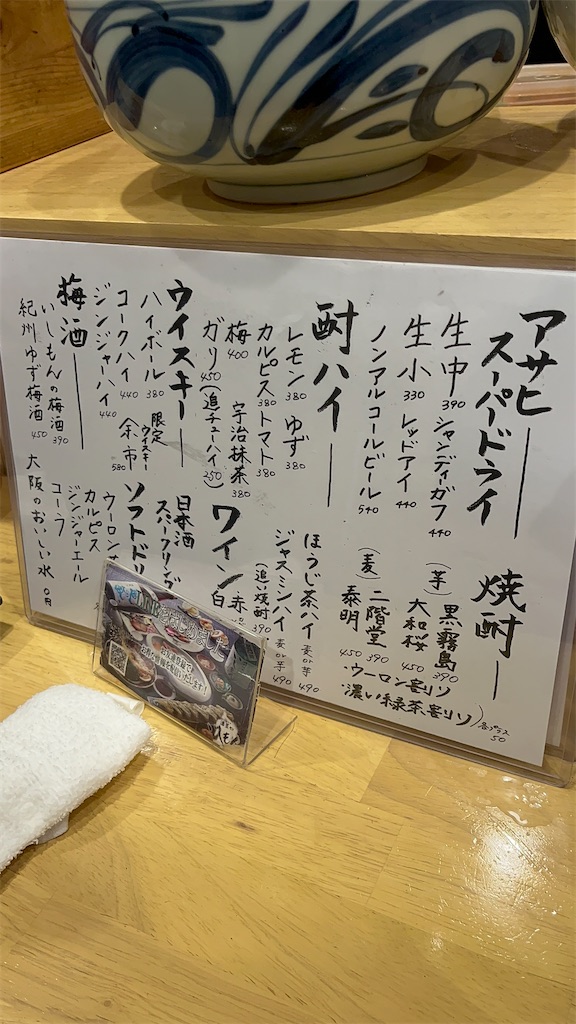 アサヒ
スーパードライ
生中 390
シャンディガフ 440
生小 330
レッドアイ 440
ノンアルコールビール 540
焼酎
(芋)
黒霧島 390
大和桜 450
(麦)
二階堂 390
泰明 450
・ウーロン割り
・濃い緑茶割り
各プラス 50
酎ハイ
レモン 380
ゆず 380
カルピス 380
トマト 380
梅 400
宇治抹茶 380
ガリ 450
(追チューハイ) 250
ほうじ茶ハイ 麦or芋 490
ジャスミンハイ 麦or芋 490
(追)焼酎
ウイスキー
ハイボール 380
限定
ウイスキー
余市 580
コークハイ 440
ジンジャーハイ 440
ワイン
赤
白
日本酒
スパークリング
梅酒
いしもんの梅酒 390
紀州ゆず梅酒 450
ソフトドリ
ウーロン
カルピス
ジンジャーエール
コーラ
大阪のおいしい水 0円